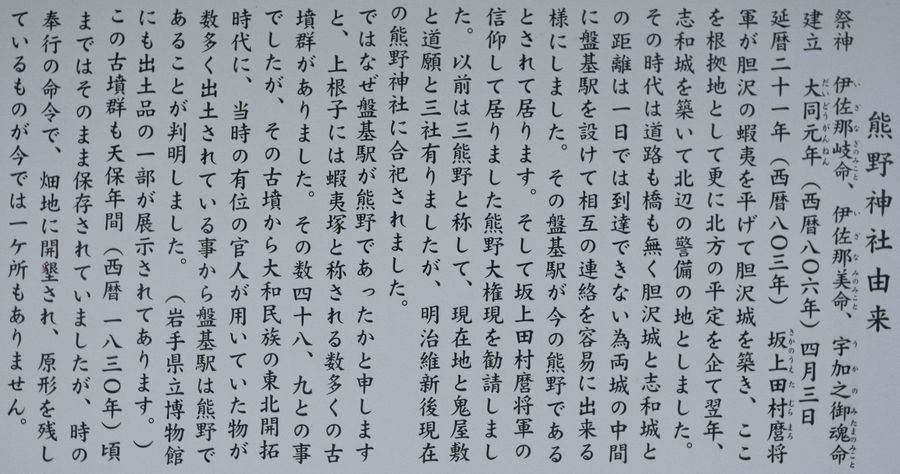 熊野神社由来
祭神　伊佐那岐命、伊佐那美命、宇加之御魂命
建立　大同元年（西暦八〇六年）四月三日
延暦二十一年（西暦八〇三年）　坂上田村麿将
軍が胆沢の蝦夷を平げて胆沢城を築き、ここ
を根拠地として更に北方の平定を企て翌年、
志和城を築いて北辺の警備の地としました。
その時代は道路も橋も無く胆沢城と志和城と
の距離は一日では到達できない為両城の中間
に盤基駅を設けて相互の連絡を容易に出来る
様にしました。その盤基駅が今の熊野である
とされて居ります。そして坂上田村麿将軍の
信仰して居りました熊野大権現を勧請しまし
た。以前は三熊野と称して、現在地と鬼屋敷
と道願と三社有りましたが、明治維新後現在
の熊野神社に合祀されました。
ではなぜ盤基駅が熊野であったかと申します
と、上根子には蝦夷塚と称される数多くの古
墳群がありました。その数四十八、九との事
でしたが、その古墳から大和民族の東北開拓
時代に、当時の有位の官人が用いていた物が
数多く出土されている事から盤基駅は熊野で
あることが判明しました。　（岩手県立博物館
にも出土品の一部が展示されてあります。）
この古墳群も天保年間（西暦一八三〇年）頃
まではそのまま保存されていましたが、時の
奉行の命令で、畑地に開墾され、原形を残し
ているものが今では一ケ所もありません。